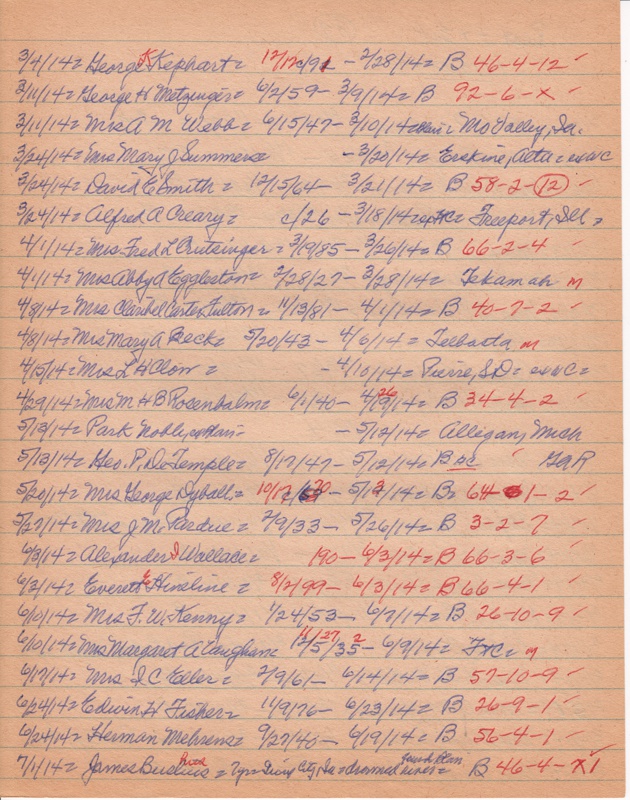 3/4/14= George K Kephart= 12/12 c/91 - 2/28/14= B 46-4-12 ✓
3/11/14= George H Metzinger= 6/2/59- 3/9/14= B 92-6-x ✓
3/11/14= Mrs A M Webb= 6/15/47- 3/10/14= Mo Valley, Ia.
3/24/14= Mrs Mary J Summers= -3/20/14= Erskine, Alta= exWC
3/24/14= David E Smith= 12/15/64- 3/21/14= B 58-2-12 ✓
3/24/14= Alfred A Creary= c/26 - 3/18/14= exHC= Freeport, Ill=
4/1/14= Mrs Fred L Crutsinger= 3/19/85- 3/26/14= B 66-2-4 ✓
4/1/14= Mrs Abby A Eggleston= 2/28/27- 3/28/14= Tekamah m
4/8/14= Mrs Claribel Carter Fulton= 11/13/81- 4/1/14= B 40-7-2 ✓
4/8/14= Mrs Mary A Beck= 5/20/43- 4/6/14= Telbasta m
4/15/14= Mrs L H Clow= -4/10/14= Pierre, S.D= exWC=
4/29/14= Mrs M H B Rosenbalm= 6/1/40- 4/26 19/14= B 34-4-2 ✓
5/13/14= Park Noble, -5/12/14= Allegan, Mich
5/13/14= Geo. P. DeTemple= 8/17/47- 5/12/14= B oc ✓ GAR
5/20/14= Mrs George Dyball= 10/17 c/ 20 - 5/13/14= B= 64 1-2 ✓
5/27/14= Mrs J M Pardue= 2/9/33- 5/26/14= B 3-2-7 ✓
6/3/14= Alexander J Wallace= 190- 6/3/14= B 66-3-6 ✓
6/3/14= Everett E Hineline= 8/2/99- 6/3/14= B 66-4-1 ✓
6/10/14= Mrs F. W. Kenny= 1/24/53- 6/7/14= B 26-10-9 ✓
6/10/14= Mrs Margaret A Vaughan= 11/27 2 12/5/35- 6/9/14= FtC= m
6/17/14= Mrs J C Edler= 2/9/61- 6/14/14= B 57-10-9 ✓
6/24/14= Edwin H Fisher= 11/9/76- 6/23/14= B 26-9-1 ✓
6/24/14= Herman Mehrens= 9/27/40- 6/19/14= B 56-4-1 ✓
7/1/14= James = Sioux City, Ia= drowned river= B 46-4-x1 ✓